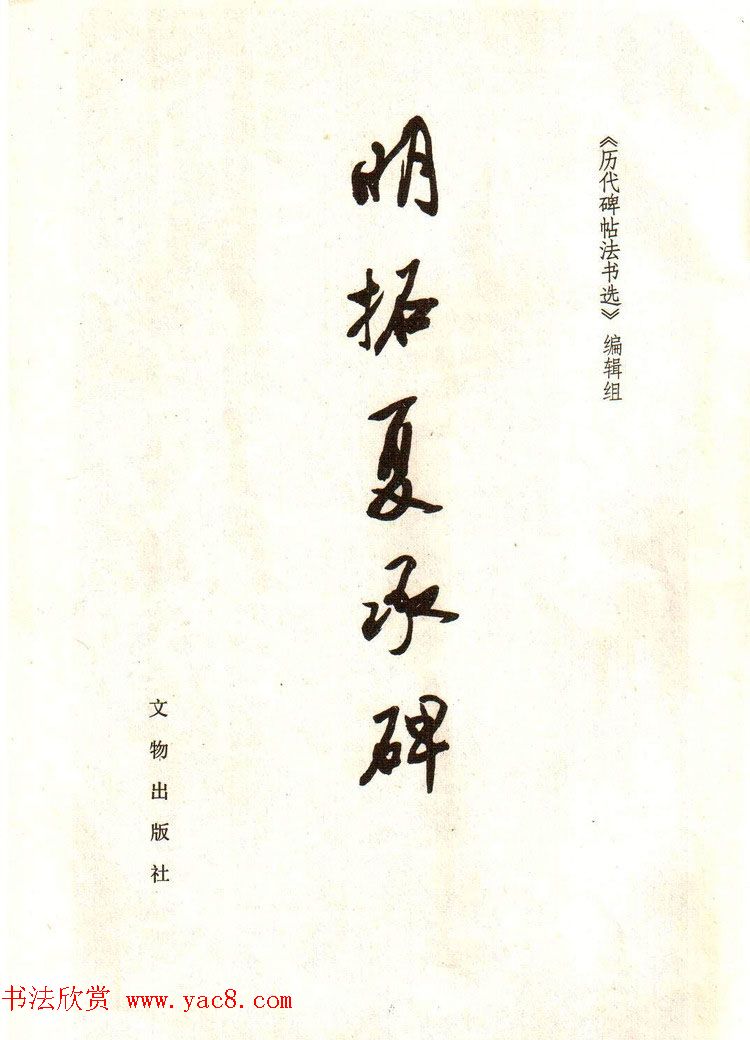 《历代碑帖法书选》编辑组
明拓夏承碑
文物出版社
书法欣赏 www.yac8.com